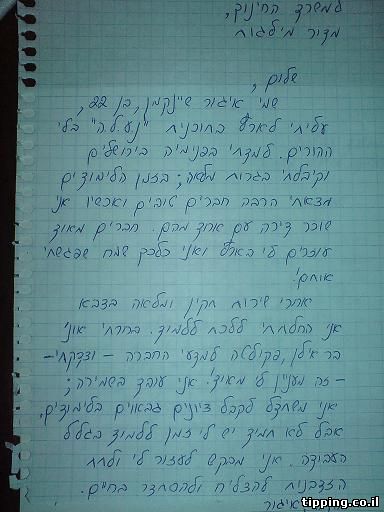 למשרד החינוך,
מדור מילגות
שלום,
שמי איגור שיינקמן, בן 22,
עליתי לארץ בתוכנית "נ.ע.ל.ה" בלי
ההורים. למדתי בפנימיה בירושלים
וקיבלתי בגרות מלאה; בזמן הלימודים
מצאתי הרבה חברים טובים ועכשיו אני
שוכר דירה עם אחד מהם. חברים מאוד
עוזרים לי בארץ ואני כל כך שמח שפגשתי
אותם!
אחרי שירות תקין ומלאה בצבא
אני החלטתי ללכת ללמוד. בחרתי אונ'
בר אילן, פקולטה למדעי החברה – וצדקתי –
– זה מענין לי מאוד! אני עובד בשמירה;
אני משתדל לקבל ציונים גבוהים בלימודים,
אבל לא תמיד יש לי זמן ללמוד בגלל
העבודה. אני מבקש לעזור לי ולתת
הזדמנות להצליח ולהסתדר בחיים.
איגור
tipping.co.il